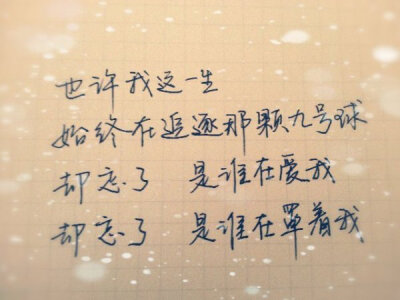 也许我这一生
始终在追逐那颗九号球
却忘了 是谁在爱我
却忘了 是谁在罩着我